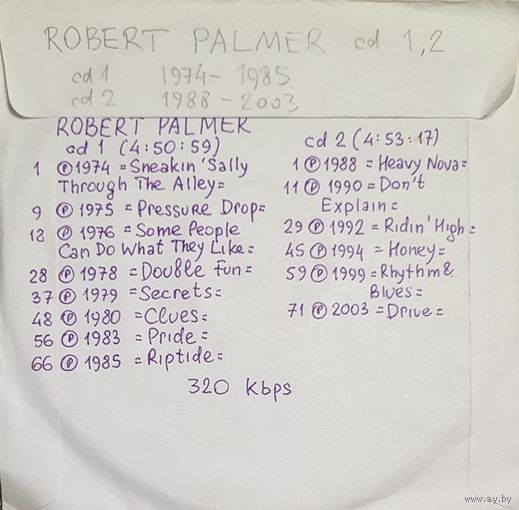 ROBERT PALMER cd 1,2
cd 1 1974 - 1985
cd 2 1988 - 2003
ROBERT PALMER
cd 1 (4:50:59)
1 Ⓟ 1974 = Sneakin' Sally
Through The Alley =
9 Ⓟ 1975 = Pressure Drop =
18 Ⓟ 1976 = Some People
Can Do What They Like =
28 Ⓟ 1978 = Double fun =
37 Ⓟ 1979 = Secrets =
48 Ⓟ 1980 = Clues =
56 Ⓟ 1983 = Pride =
66 Ⓟ 1985 = Riptide =
cd 2 (4:53:17)
1 Ⓟ 1988 = Heavy Nova =
11 Ⓟ 1990 = Don't
Explain =
29 Ⓟ 1992 = Ridin' High =
45 Ⓟ 1994 = Honey =
59 Ⓟ 1999 = Rhythm &
Blues =
71 Ⓟ 2003 = Drive =
320 Kbps
www.ay.by